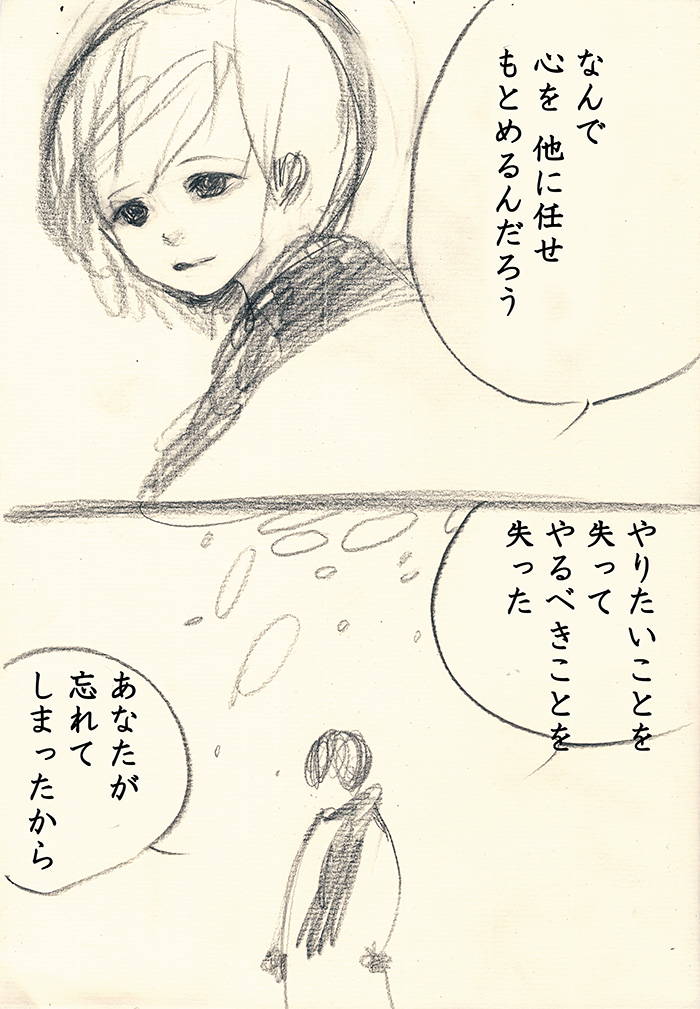 なんで
心を 他に任せ
もとめるんだろう
やりたいことを
失って
やるべきことを
失った
あなたが
忘れて
しまったから